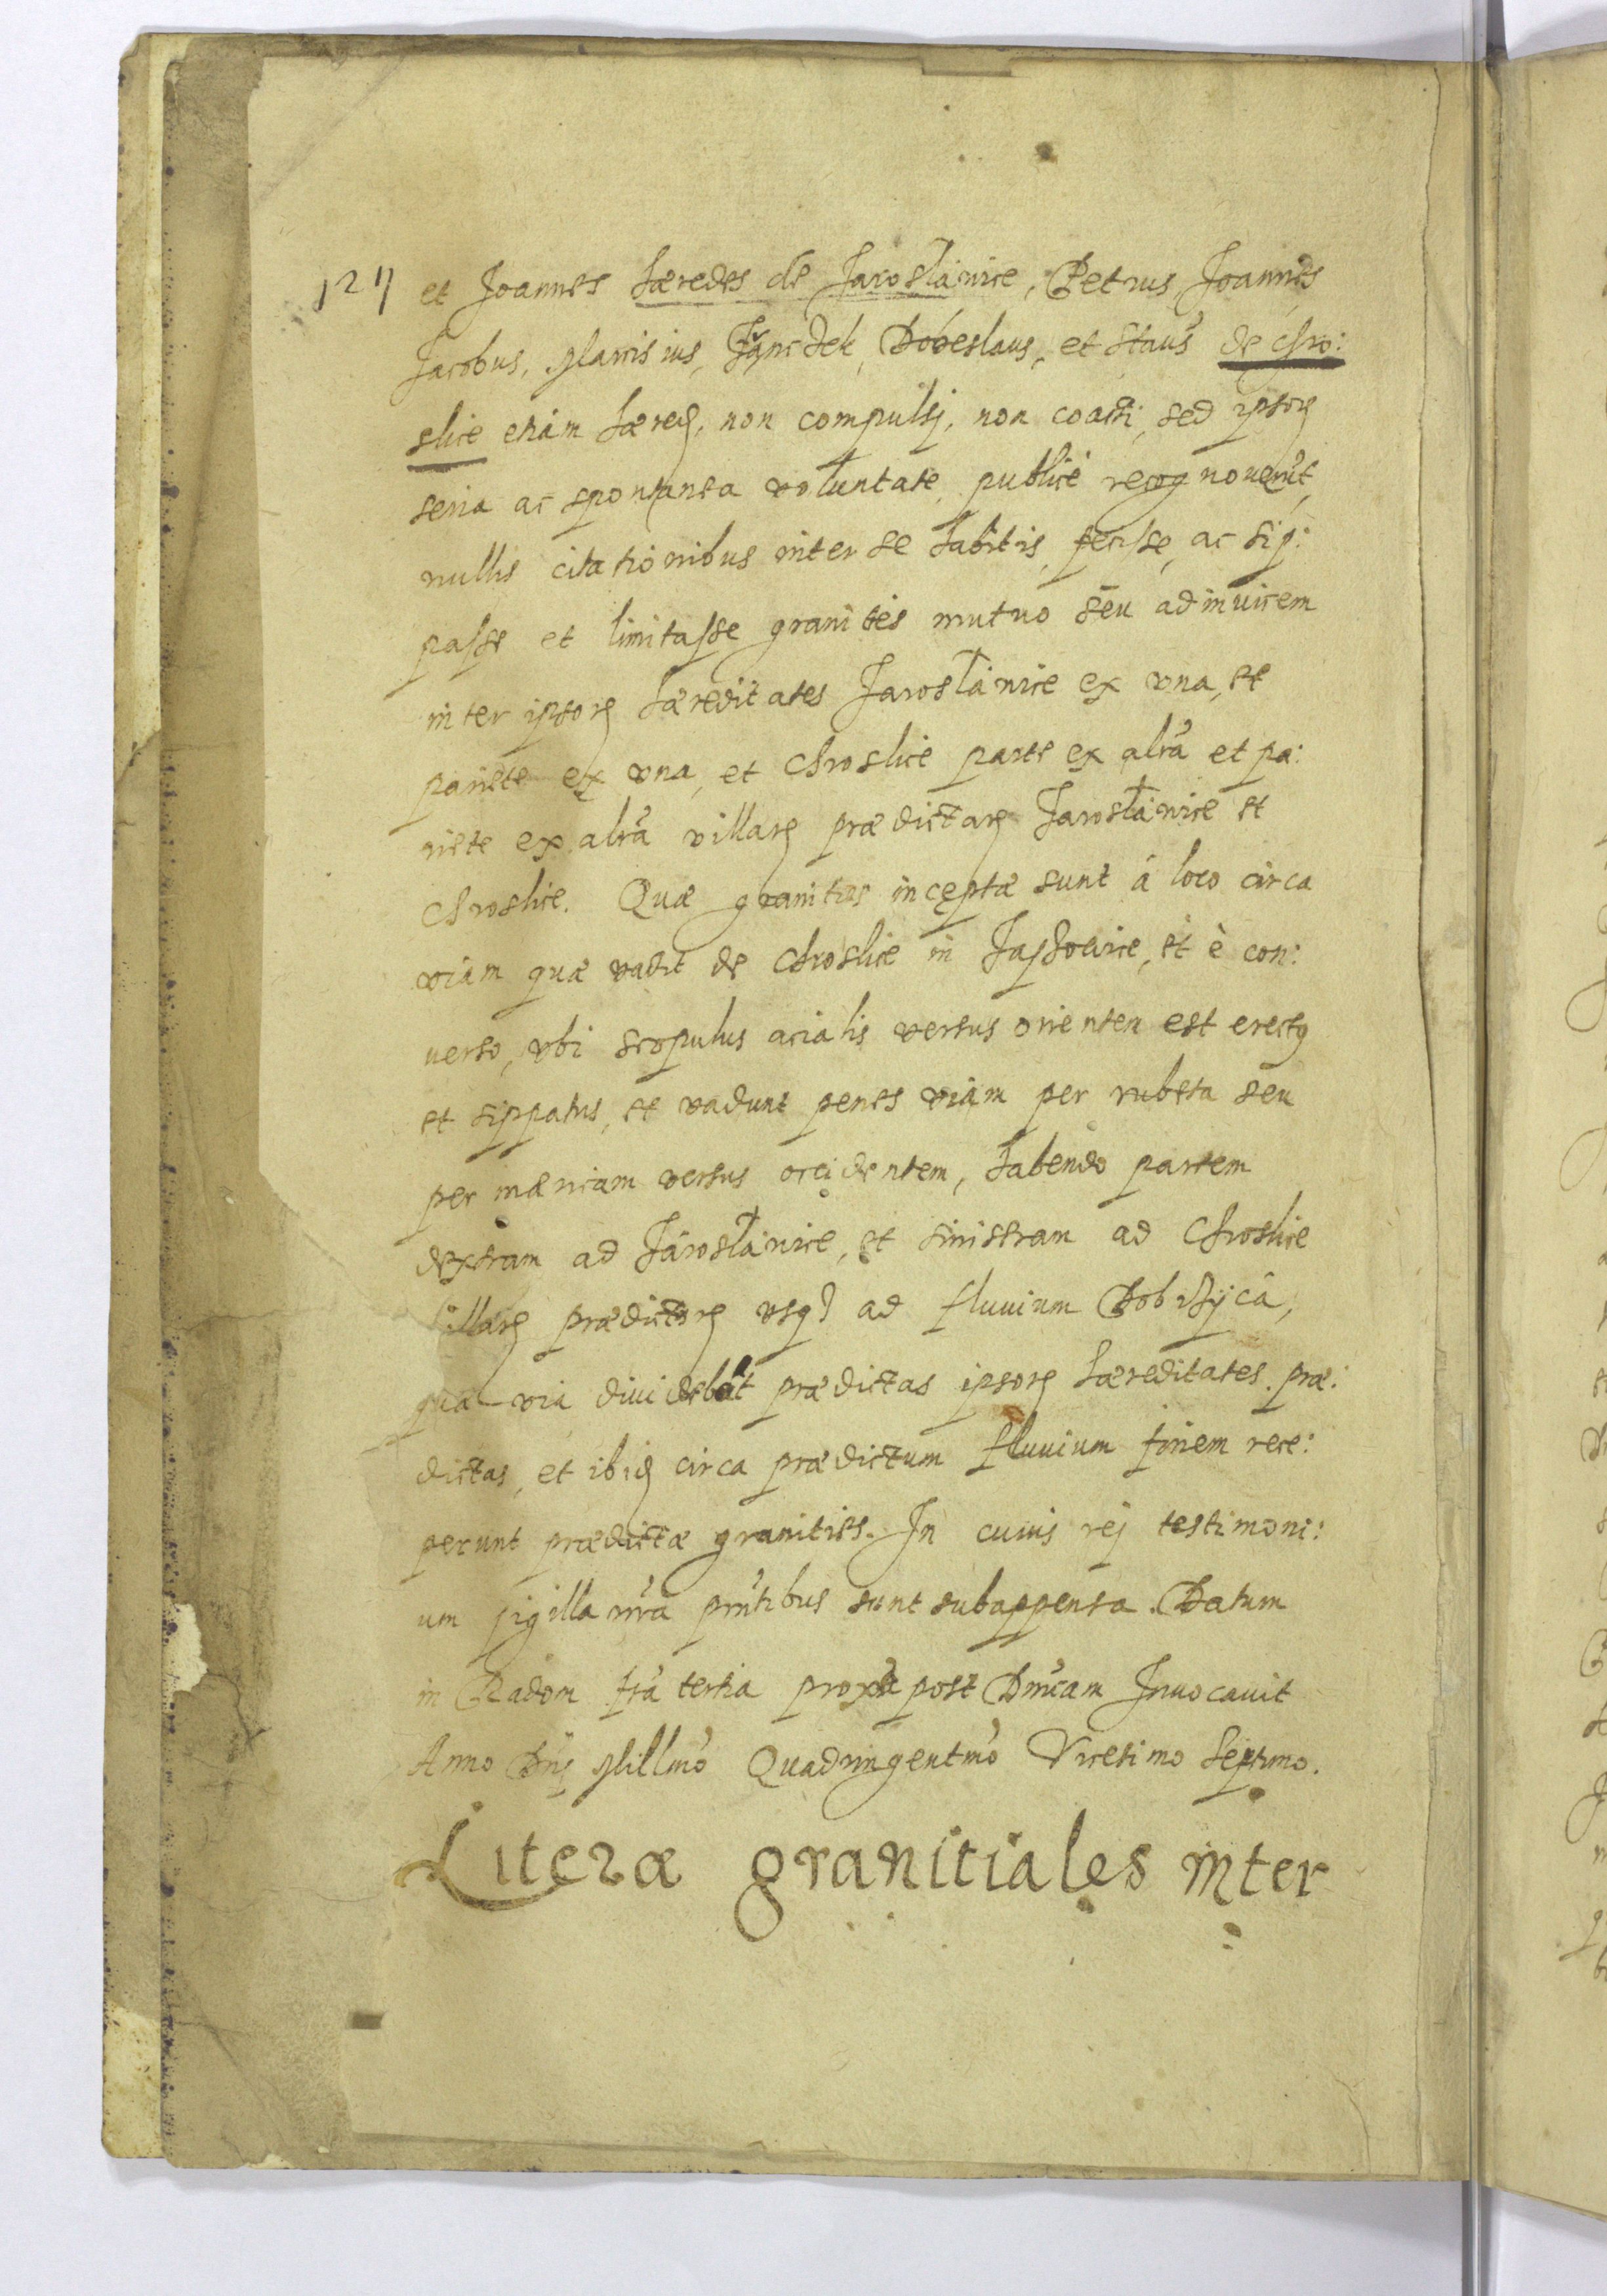 127 et Joannes hæredes de Jarosłáwice, Petrus, Joannes
Jacobus, Marcisius, Dobeslaus, et Staus de Chro:
slice etiam hæred, non compulsj, non coacti, sed ipsorȝ
seria ac spontanea voluntate, publicè recognouerūt,
nullis citationibus inter se habitis, fecisse, ac sip:
passe et limitasse granities mutuo seu adinuicem
inter ipsorȝ hæreditates Jarosłáwice ex vna, et
pariete ex vna, et Chroslice parte ex altrá et pa:
riete ex altrá villarȝ prædictarȝ Jarosłáwice et
Chroslice. Quæ granities inceptæ sunt á loco circa
viam quæ vadit de Chroslice in et è con:
uerso, vbi scopulus acialis versus orientem est erectȝ
et sippatus, et vadunt penes viam per rubeta seu
per mæricam versus occidentem, habendo partem
dextram ad Járosłáwice, et sinistram ad Chroslice
villarȝ prædictarȝ vsqȝ ad fluuium
quæ via diuidebat prædictas ipsorȝ hæreditates præ:
dictas, et ibid circa prædictum fluuium finem rece:
perunt prædictæ granities. In cuius rej testimoni:
um sigilla nrá prntibus sunt subappensa. Datum
in Radom frá tertia proxa post Dnicam Inuocauit
Anno Dnj Millmo Quadringentmo Vicesimo Septimo.
Literæ granitiales inter